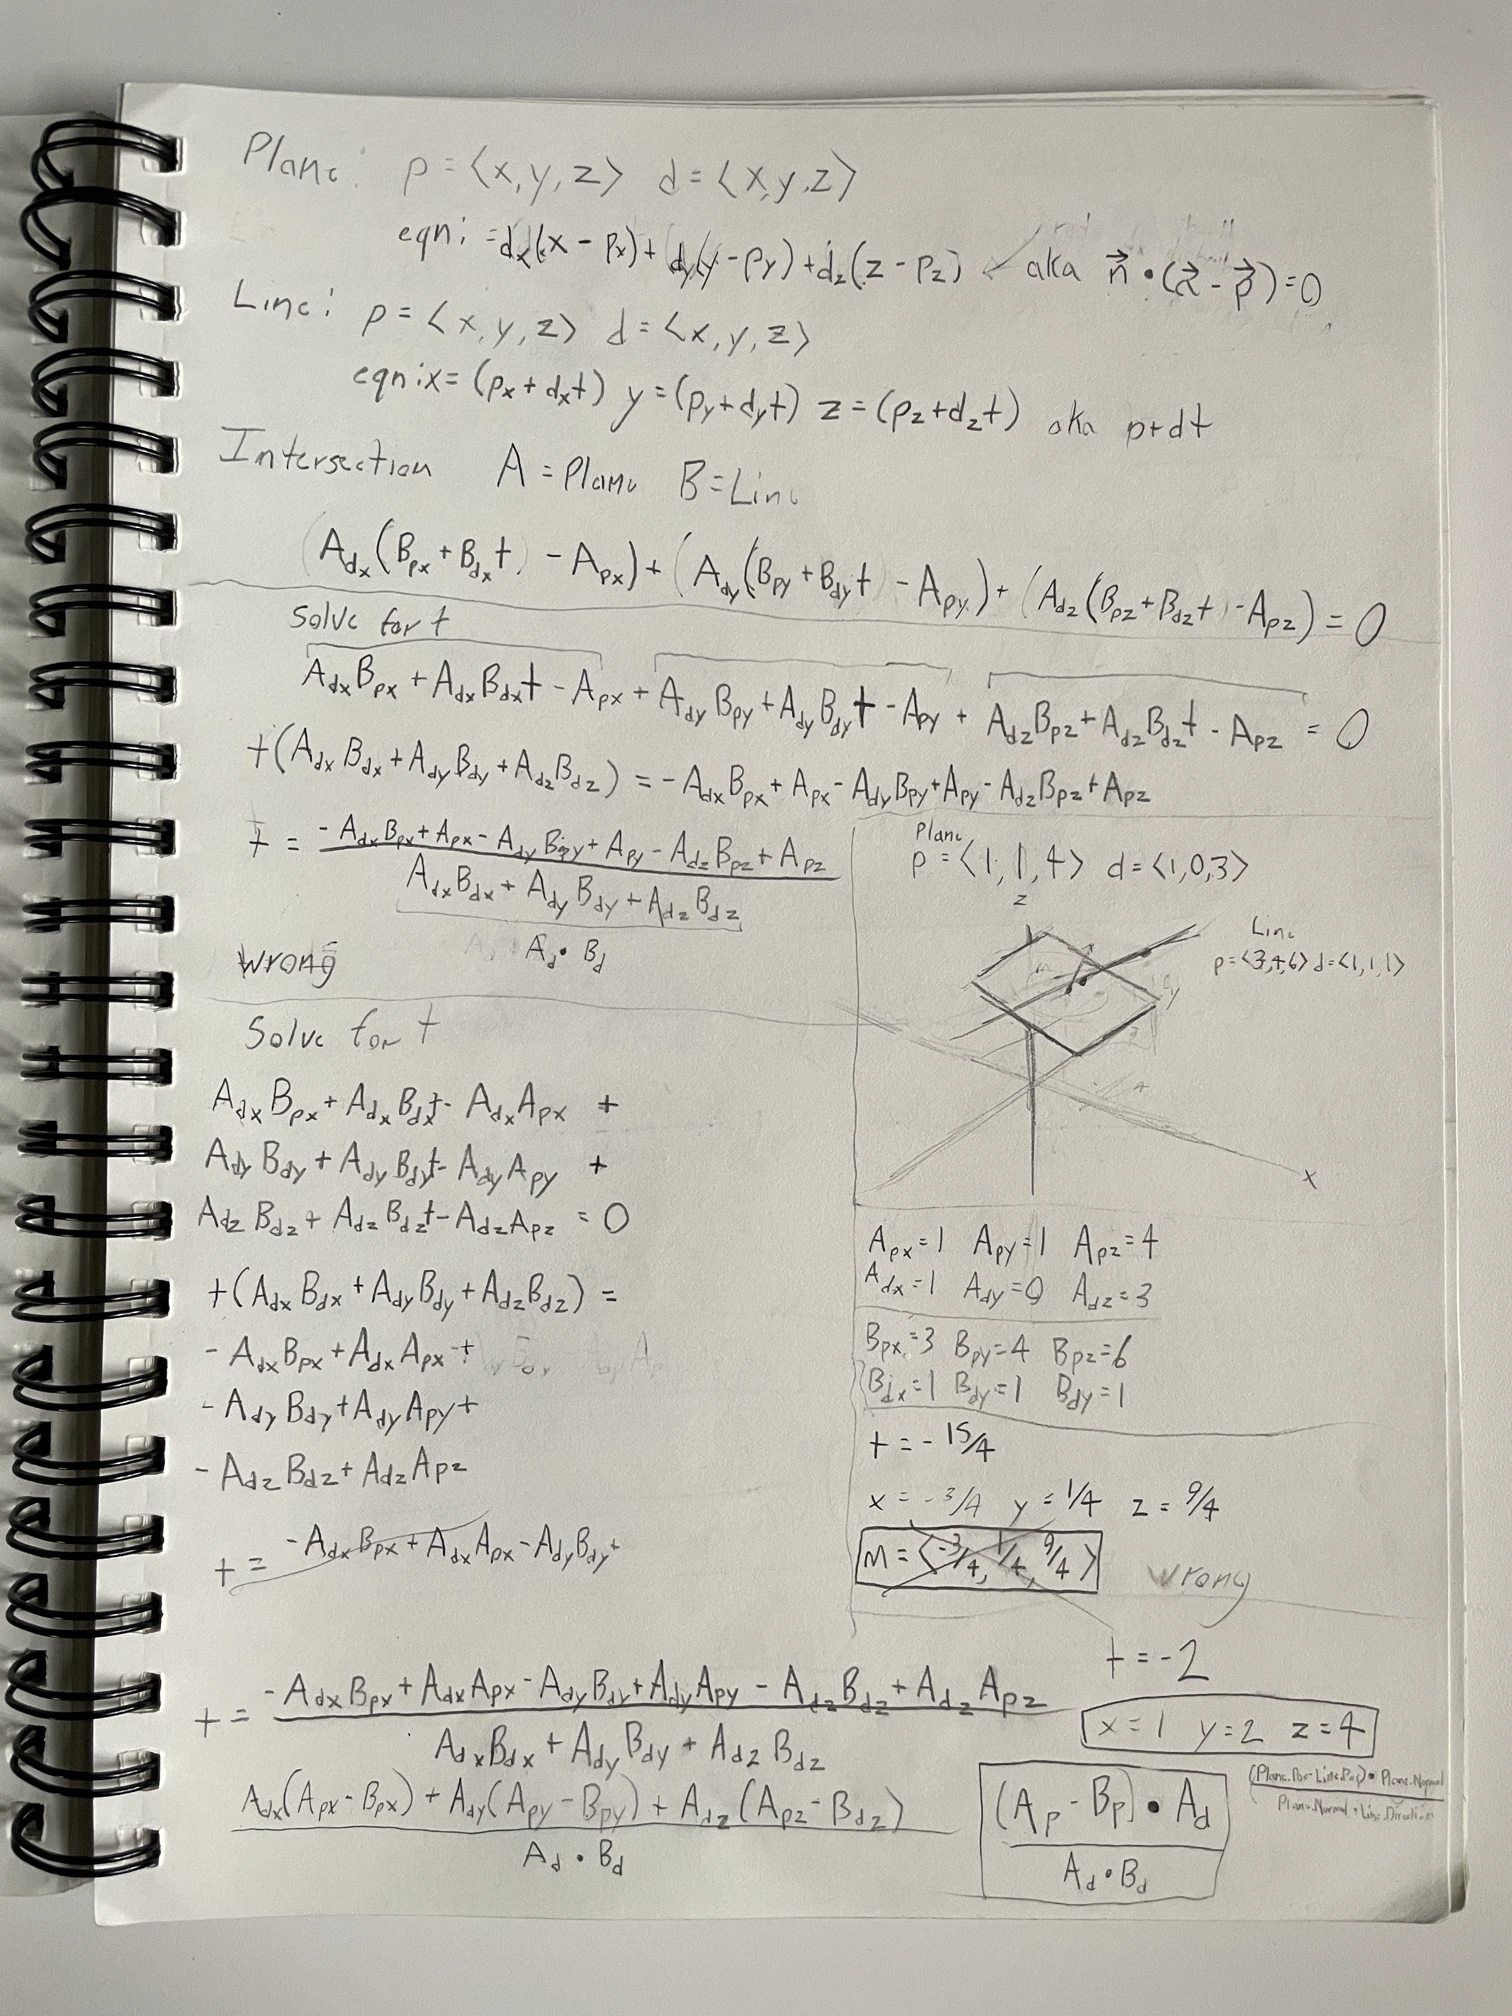 Plane: p = <x, y, z> d = <x, y, z>
eqn: = dx(x - px) + dy(y - py) + dz(z - pz) ← aka n⃗ • (x⃗ - p⃗) = 0
Line: p = <x, y, z> d = <x, y, z>
eqn: x = (px + dxt) y = (py + dyt) z = (pz + dzt) aka p+dt
Intersection A = Plane B = Line
(Adx(Bpx + Bdxt) - Apx) + (Ady(Bpy + Bdyt) - Apy) + (Adz(Bpz + Bdzt) - Apz) = 0
Solve for t
AdxBpx + AdxBdxt - Apx + AdyBpy + AdyBdyt - Apy + AdzBpz + AdzBdzt - Apz = 0
t(AdxBdx + AdyBdy + AdzBdz) = -AdxBpx + Apx - AdyBpy + Apy - AdzBpz + Apz
t = -AdxBpx + Apx - AdyBpy + Apy - AdzBpz + Apz
AdxBdx + AdyBdy + AdzBdz
Ad • Bd
Wrong
Solve for t
AdxBpx + AdxBdxt - AdxApx +
AdyBdy + AdyBdyt - AdyApy +
AdzBdz + AdzBdzt - AdzApz = 0
t(AdxBdx + AdyBdy + AdzBdz) =
-AdxBpx + AdxApx +
-AdyBdy + AdyApy +
-AdzBdz + AdzApz
t = -AdxBpx + AdxApx - AdyBdy +
Plane
p = <1, 1, 4> d = <1,0,3>
z
Line
p=<3,4,6> d=<1,1,1>
y
x
Apx=1 Apy=1 Apz=4
Adx=1 Ady=0 Adz=3
Bpx=3 Bpy=4 Bpz=6
Bdx=1 Bdy=1 Bdy=1
t = -15/4
x = -3/4 y = 1/4 z = 9/4
m = <-3/4, 1/4, 9/4>
Wrong
t = -2
x = 1 y = 2 z = 4
t = -AdxBpx + AdxApx - AdyBdy + AdyApy - AdzBdz + AdzApz
AdxBdx + AdyBdy + AdzBdz
Adx(Apx - Bpx) + Ady(Apy - Bpy) + Adz(Apz - Bdz)
Ad • Bd
(Ap - Bp) • Ad
Ad • Bd
(Plane.Pos - Line.Pos) • Plane.Normal
Plane.Normal • Line.Direction